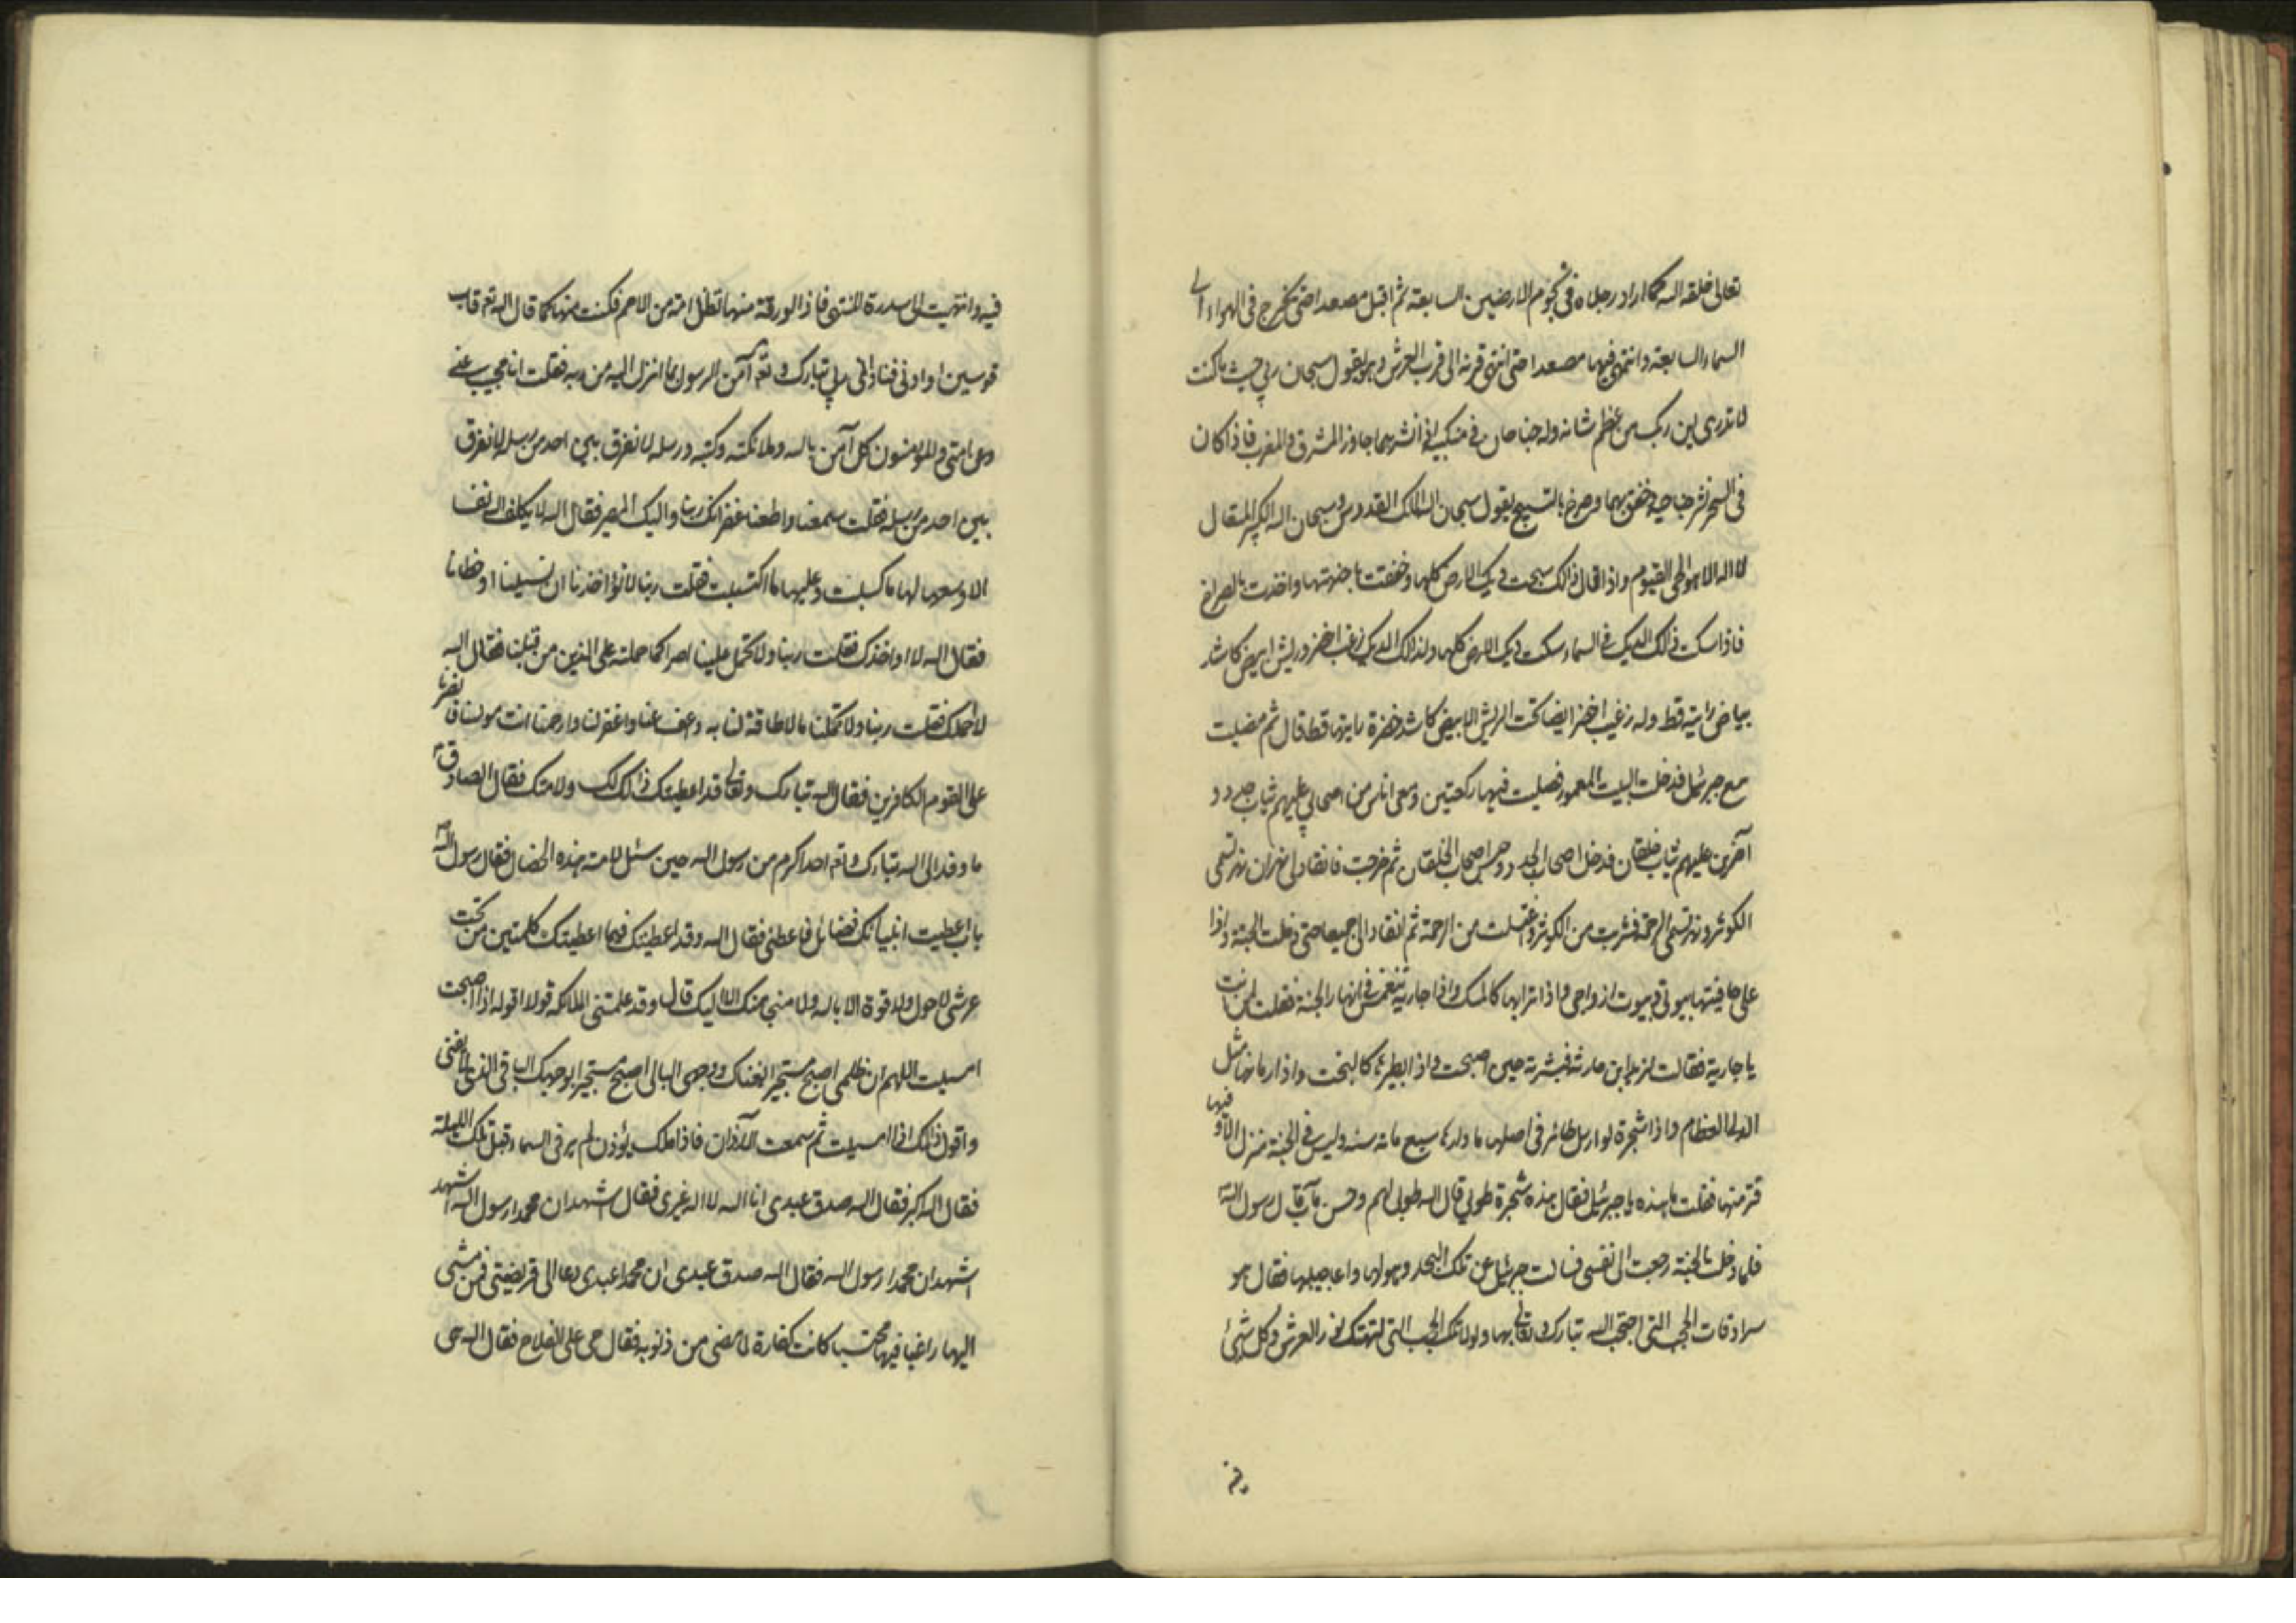 تعالی خلقه الله کما اراد رجلاه فی تخوم الارضین السابعة ثم اقبل مصعدا حتی تخرج فی الهواء الی
السماء السابعة وانتهی فیها مصعدا حتی انتهی قرنه الی قرب العرش وهو یقول سبحان ربی حیث ما کنت
لا تدری این ربک من عظم شانه وله جناحان فی منکبیه اذا نشرهما جاوز المشرق والمغرب فاذا کان
فی السحر نشر جناحیه وخفق بهما وصرخ بالتسبیح یقول سبحان الله الملک القدوس وسبحان الله الکبیر المتعال
لا اله الا هو الحی القیوم واذا قال ذالک سبحت دیک الارض کلها وخفقت باجنحتها واخذت بالصراخ
فاذا سکت ذالک الدیک فی السماء سکت دیک الارض کلها ولذالک الدیک زغب اخضر وریش ابیض کاشد
بیاض رایته قط وله زغیب اخضر ایضا تحت الریش الابیض کاشد خضرة رایتها قط قال ثم مضیت
مع جبرئیل فدخلت البیت المعمور فصلیت فیها رکعتین ومعی اناس من اصحابی علیهم ثیاب جدد و
آخرین علیهم ثیاب خلقان فدخل اصحاب الجدد وحبس اصحاب الخلقان ثم خرجت فانقاد لی نهران نهر تسمی
الکوثر ونهر تسمی الرحمة فشربت من الکوثر واغتسلت من الرحمة ثم انقادا لی جمیعا حتی دخلت الجنة واذا
علی حافیتها بیوتی وبیوت ازواجی واذا ترابها کالمسک واذا جاریة تنغمس فی انهار الجنة فقلت لمن انت
یا جاریة فقالت لزید ابن حارثة فبشرته حین اصبحت واذا بطیرها کالبخت واذا رمانها مثل
الدلا العظام واذا شجرة لو ارسل طائر فی اصلها ما دارها سبع مائة سنه ولیس فی الجنة منزل الا وفیها
قتر منها فقلت ما هذه یا جبرئیل فقال هذه شجرة طوبی قال الله طوبی لهم وحسن مآب قال رسول الله
فلما دخلت الجنة رجعت الی نفسی فسالت جبرئیل عن تلک البحار وهولها واعاجیبها فقال هو
سرادقات الحجب التی احتجب الله تبارک وتعالی بها ولولا تلک الحجب التی لتهتک نور العرش وکل شیئ
فیه وانتهیت الی سدرة المنتهی فاذا الورقة منها تظل امة من الامم فکنت منها کما قال الله تع قاب
قوسین او ادنی فنادانی ربی تبارک وتع آمن الرسول بما انزل الیه من ربه فقلت انا مجیب عنی
وعن امتی والمؤمنون کل آمن بالله وملائکته وکتبه ورسله لا نفرق بین احد من رسله لا نفرق
بین احد من رسله فقلت سمعنا واطعنا غفرانک ربنا والیک المصیر فقال الله لا یکلف الله نفسا
الا وسعها لها ما کسبت وعلیها ما اکتسبت فقلت ربنا لا تؤاخذنا ان نسینا او خطانا
فقال الله لا اواخذک فقلت ربنا ولا تحمل علینا اصرا کما حملته علی الذین من قبلنا فقال الله
لا احملک فقلت ربنا ولا تحملنا ما لا طاقة لنا به واعف عنا واغفر لنا وارحمنا انت مولینا فانصرنا
علی القوم الکافرین فقال الله تبارک وتعالی قد اعطیتک ذالک لک ولامتک فقال الصادق
ما وفد الی الله تبارک وتع احد اکرم من رسول الله حین سئل لامته هذه الخصال فقال رسول الله
یا رب اعطیت انبیائک فضائل فاعطنی فقال الله وقد اعطیتک فیما اعطیتک کلمتین من تحت
عرشی لا حول ولا قوة الا بالله ولا منجی منک الا الیک قال وقد علمتنی الملائکه قولا اقوله اذا اصبحت
امسیت اللهم ان ظلمی اصبح مستجیرا بغناک ووجهی البالی اصبح مستجیرا بوجهک الباقی الذی لا یفنی
واقول ذالک اذا امسیت ثم سمعت الآذان فاذا ملک یؤذن لم یر فی السماء قبل تلک اللیلة
فقال الله اکبر فقال الله صدق عبدی انا الله لا اله غیری فقال اشهد ان محمدا رسول الله اشهد
اشهد ان محمدا رسول الله فقال الله صدق عبدی ان محمدا عبدی دعا الی فریضتی فمن مشی
الیها راغبا فیها محتسبا کانت کفارة لما مضی من ذنوبه فقال حی علی الفلاح فقال الله حی